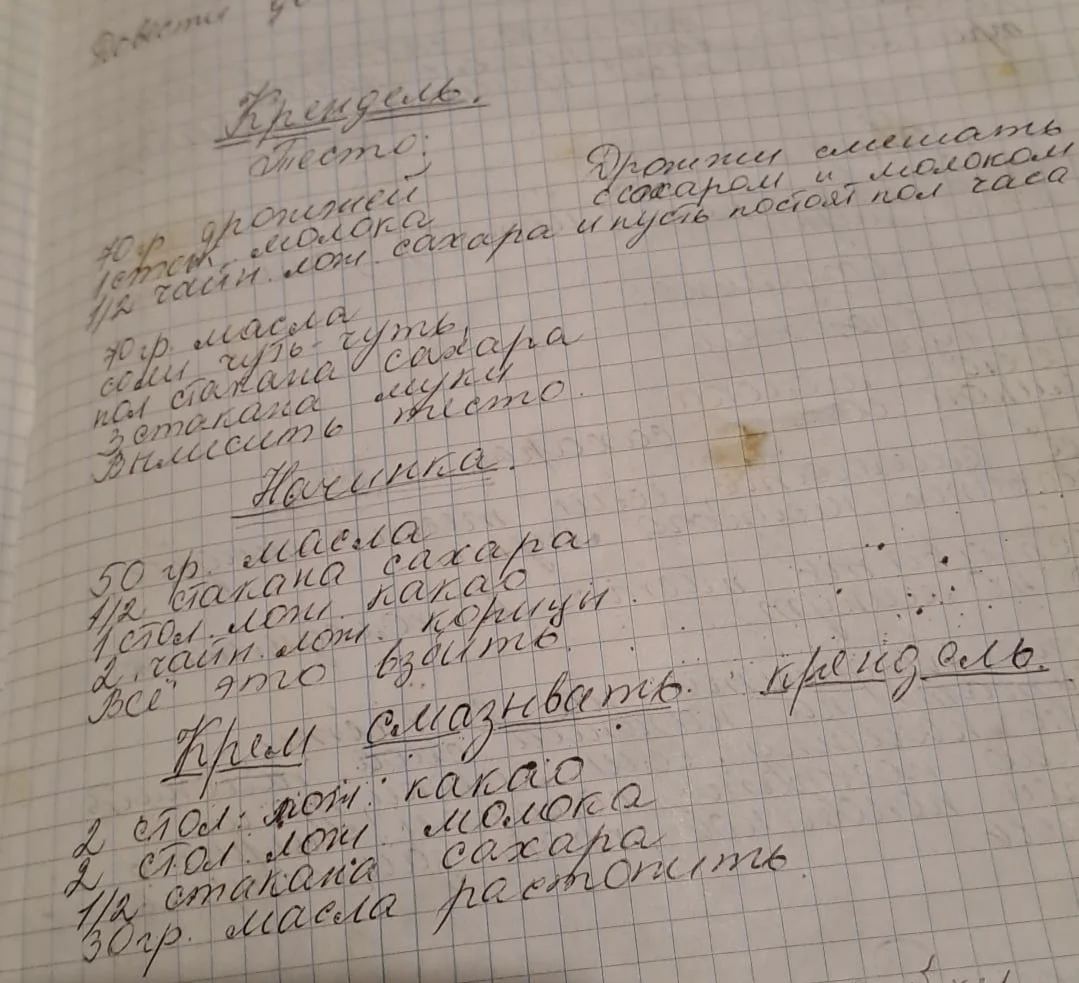 Довести
Крендель.
Тесто:
70 гр. дрожжей
1 стак. молока
1/2 чайн. лож. сахара
Дрожжи смешать
с сахаром и молоком
и пусть постоят пол часа
70 гр. масла
соли чуть-чуть,
пол стакана сахара
3 стакана муки
Вымисить тесто.
Начинка.
50 гр. масла
1/2 стакана сахара
1 стол. лож. какао
2 чайн. лож. корицы.
Всё это взбить.
Крем смазывать крендель.
2 стол. лож. какао
2 стол. лож. молока
1/2 стакана сахара
30 гр. масла растопить.